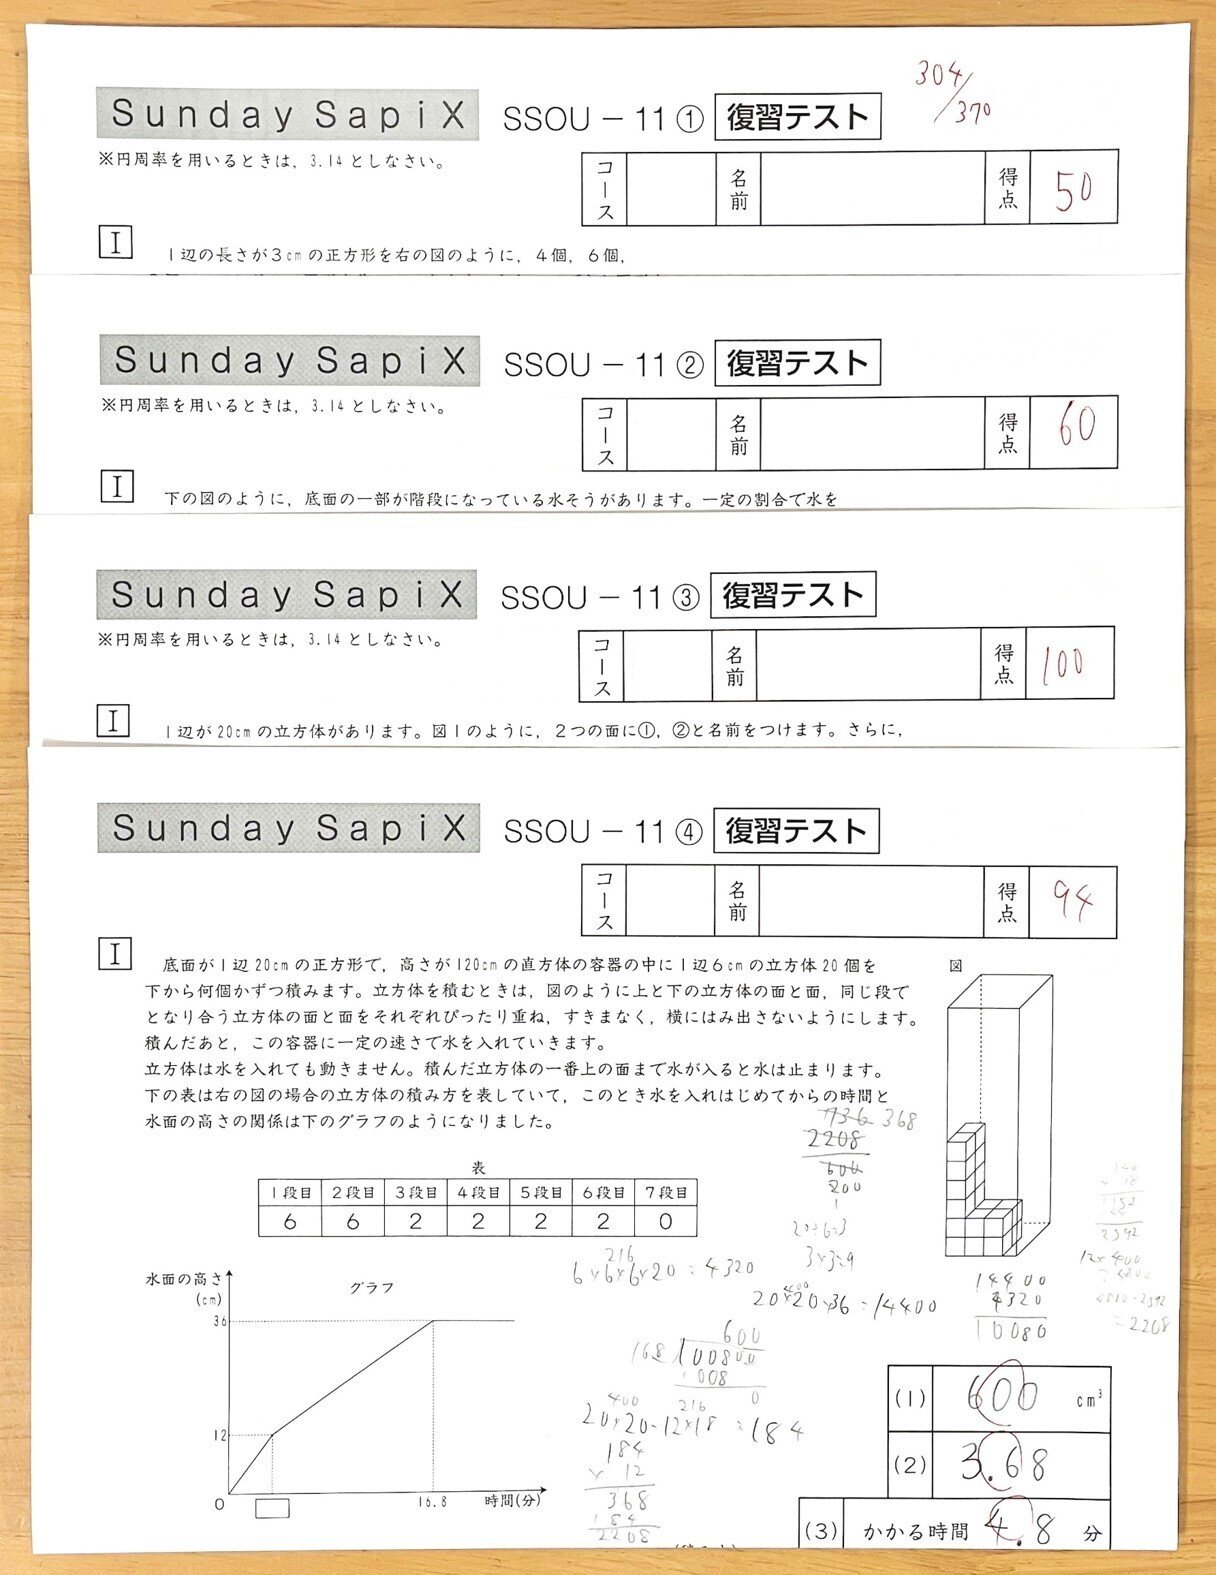 304/370
Sunday SapiX SSOU－11① 復習テスト
※円周率を用いるときは，3.14としなさい。
コース 名前 得点 50
I
1辺の長さが3cmの正方形を右の図のように，4個，6個，
Sunday SapiX SSOU－11② 復習テスト
※円周率を用いるときは，3.14としなさい。
コース 名前 得点 60
I
下の図のように，底面の一部が階段になっている水そうがあります。一定の割合で水を
Sunday SapiX SSOU－11③ 復習テスト
※円周率を用いるときは，3.14としなさい。
コース 名前 得点 100
I
1辺が20cmの立方体があります。図1のように，2つの面に①，②と名前をつけます。さらに，
Sunday SapiX SSOU－11④ 復習テスト
コース 名前 得点 94
I
底面が1辺20cmの正方形で，高さが120cmの直方体の容器の中に1辺6cmの立方体20個を
下から何個かずつ積みます。立方体を積むときは，図のように上と下の立方体の面と面，同じ段で
となり合う立方体の面と面をそれぞれぴったり重ね，すきまなく，横にはみ出さないようにします。
積んだあと，この容器に一定の速さで水を入れていきます。
立方体は水を入れても動きません。積んだ立方体の一番上の面まで水が入ると水は止まります。
下の表は右の図の場合の立方体の積み方を表していて，このとき水を入れはじめてからの時間と
水面の高さの関係は下のグラフのようになりました。
図
736 368
2208
600
200
1
表
1段目 2段目 3段目 4段目 5段目 6段目 7段目
6 6 2 2 2 2 0
20÷6=3
3×3=9
216
6×6×6×20=4320
400
20×20×36=14400
14400
4320
10080
2592
12×400
=4800
4800-2592
=2208
水面の高さ
(cm)
グラフ
36
12
0
16.8
時間(分)
600
168 100800
1008
0
400
216
20×20-12×18=184
184
×12
368
184
2208
(1) 600 cm³
(2) 3.68
(3) かかる時間 4.8 分